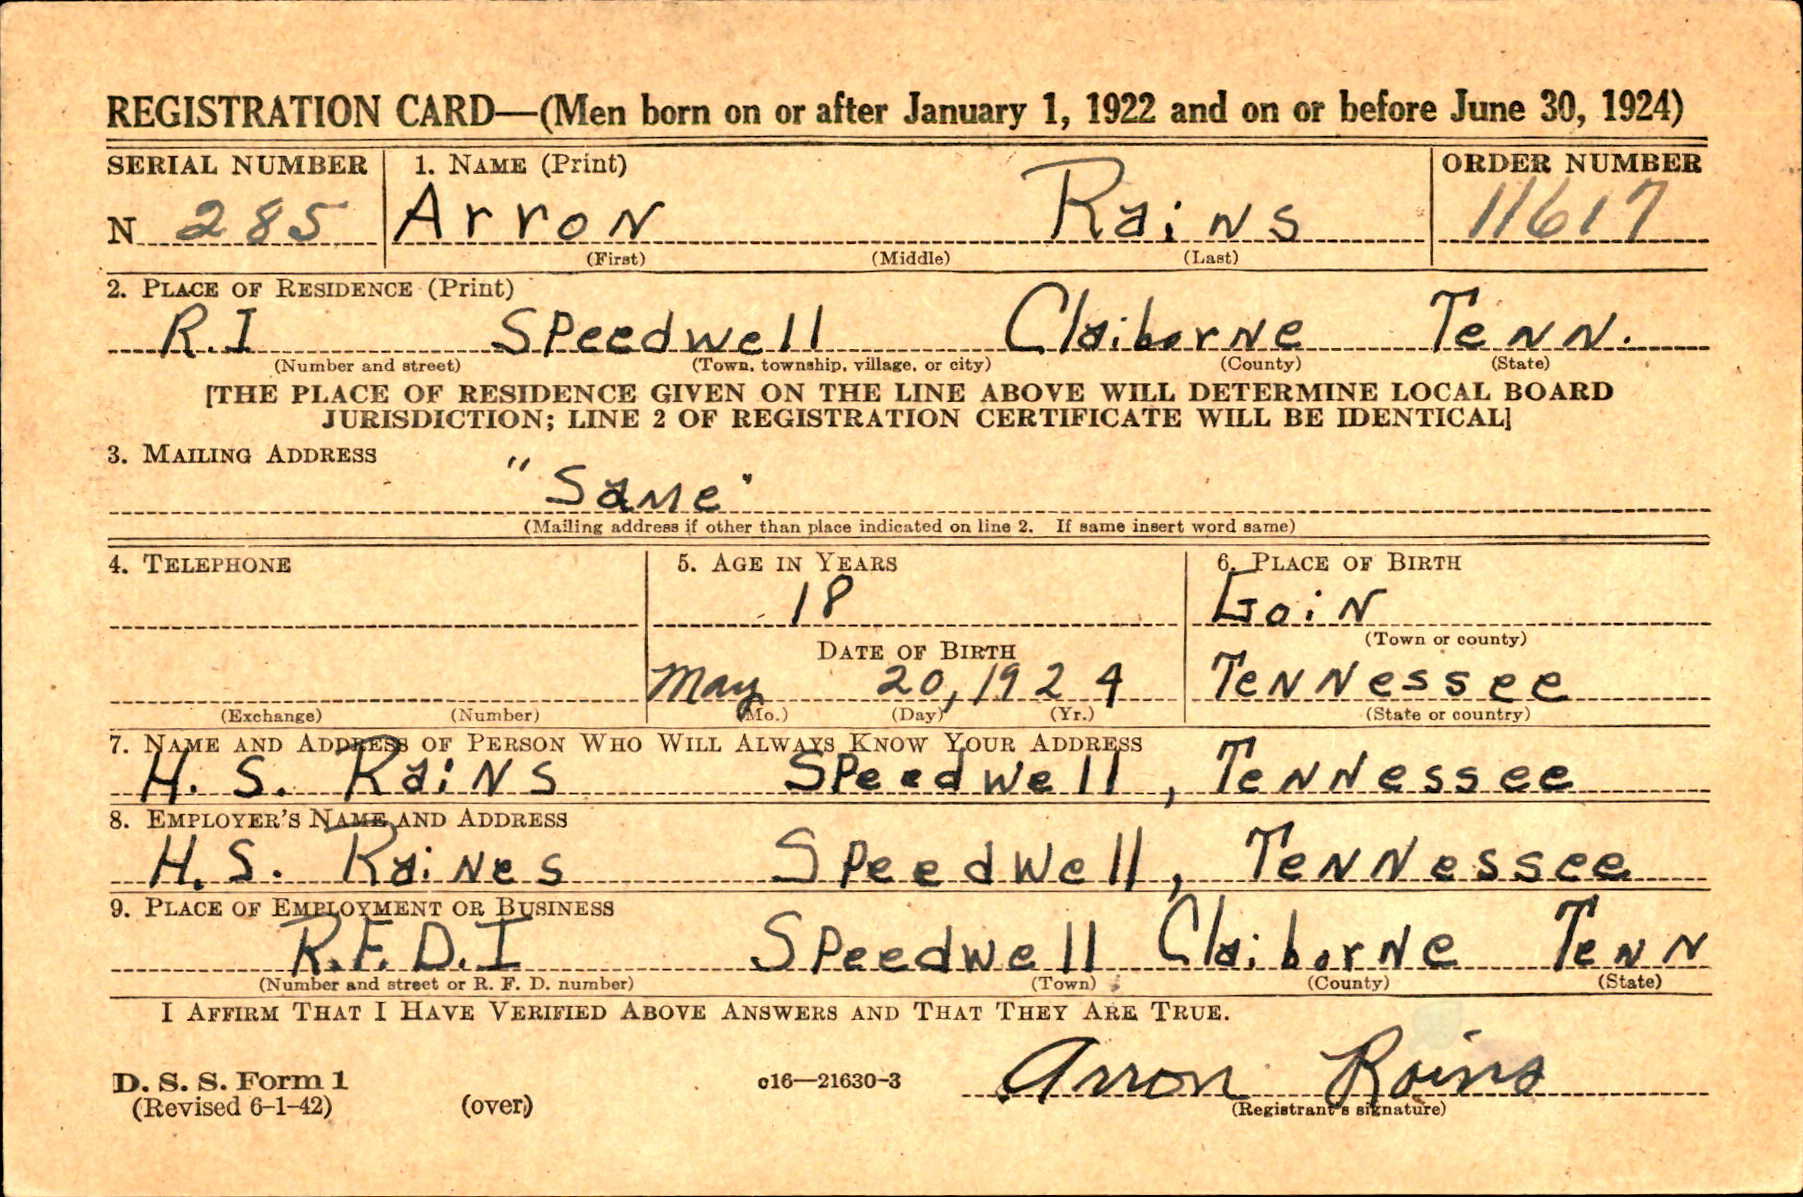 REGISTRATION CARD—(Men born on or after January 1, 1922 and on or before June 30, 1924)
SERIAL NUMBER 1. NAME (Print) ORDER NUMBER
N 285 Arron Rains 11617
(First) (Middle) (Last)
2. PLACE OF RESIDENCE (Print)
R.I Speedwell Claiborne Tenn.
(Number and street) (Town, township, village, or city) (County) (State)
[THE PLACE OF RESIDENCE GIVEN ON THE LINE ABOVE WILL DETERMINE LOCAL BOARD
JURISDICTION; LINE 2 OF REGISTRATION CERTIFICATE WILL BE IDENTICAL]
3. MAILING ADDRESS
"Same"
(Mailing address if other than place indicated on line 2. If same insert word same)
4. TELEPHONE 5. AGE IN YEARS 6. PLACE OF BIRTH
18 Goin
(Town or county)
DATE OF BIRTH
May 20, 1924 Tennessee
(Exchange) (Number) (Mo.) (Day) (Yr.) (State or country)
7. NAME AND ADDRESS OF PERSON WHO WILL ALWAYS KNOW YOUR ADDRESS
H. S. Rains Speedwell, Tennessee
8. EMPLOYER'S NAME AND ADDRESS
H. S. Raines Speedwell, Tennessee
9. PLACE OF EMPLOYMENT OR BUSINESS
R.F.D.I Speedwell Claiborne Tenn
(Number and street or R. F. D. number) (Town) (County) (State)
I AFFIRM THAT I HAVE VERIFIED ABOVE ANSWERS AND THAT THEY ARE TRUE.
D. S. S. Form 1 c16—21630-3 Arron Rains
(Revised 6-1-42) (over) (Registrant's signature)